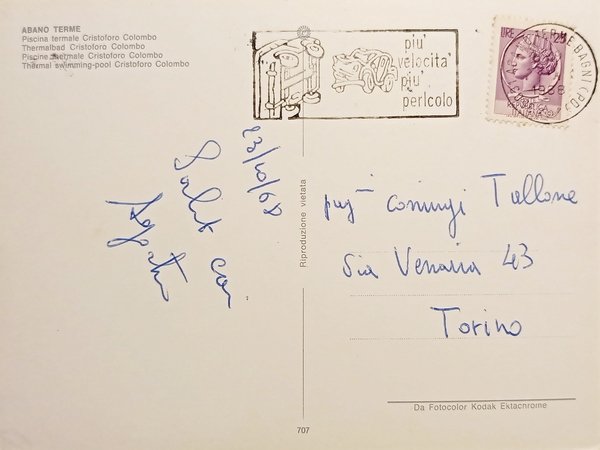 ABANO TERME
Piscina termale Cristoforo Colombo
Thermalbad Cristoforo Colombo
Piscine thermale Cristoforo Colombo
Thermal swimming-pool Cristoforo Colombo
piu'
velocita'
piu'
pericolo
LIRE 25
TERME BAGNI (PD)
1968
23/10/68
Saluti cari
Riproduzione vietata
coniugi Tallone
Via Venaria 43
Torino
Da Fotocolor Kodak Ektachrome
707